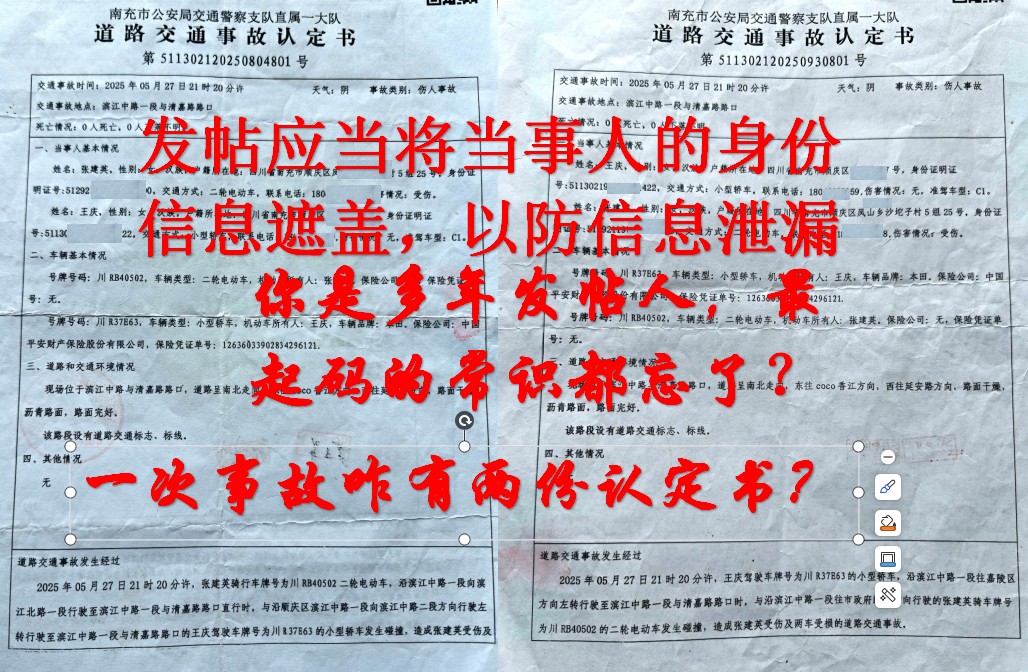 南充市公安局交通警察支队直属一大队
道路交通事故认定书
第 511302120250804801 号
交通事故时间：2025 年 05 月 27 日 21 时 20 分许 天气：阴 事故类别：伤人事故
交通事故地点：滨江中路一段与清嘉路路口
死亡情况：0 人死亡，0 人
一、当事人基本情况
姓名：张建英，性别：女
村 5 组 25 号，身份证
明证号：51292 0，交通方式：二轮电动车，联系电话：180 情况：受伤。
姓名：王庆，性别：女 身份证明证
号：5113 22，交通方式：小型轿车，联系电话 驾车型：C1。
二、车辆基本情况
号牌号码：川 RB40502，车辆类型：二轮电动车，
号：无。
号牌号码：川 R37E63，车辆类型：小型轿车，机动车所有人：王庆，车辆品牌：本田。保险公司：中国
平安财产保险股份有限公司，保险凭证单号：12636033902834296121.
三、道路和交通环境情况
现场位于滨江中路与清嘉路路口，道路呈南北走向
沥青路面，路面完好。
该路段设有道路交通标志、标线。
四、其他情况
无
道路交通事故发生经过
2025 年 05 月 27 日 21 时 20 分许，张建英骑行车牌号为川 RB40502 二轮电动车，沿滨江中路一段向滨
江北路一段行驶至滨江中路一段与清嘉路路口直行时，与沿顺庆区滨江中路一段向滨江中路二段方向行驶左
转行驶至滨江中路一段与清嘉路路口的王庆驾驶车牌号为川 R37E63 的小型轿车发生碰撞，造成张建英受伤及
南充市公安局交通警察支队直属一大队
道路交通事故认定书
第 511302120250930801 号
交通事故时间：2025 年 05 月 27 日 21 时 20 分许 天气：阴 事故类别：伤人事故
交通事故地点：滨江中路一段与清嘉路路口
死亡情况：0 人死亡，0
一、当事人基本情况
姓名：王庆，性别：女 7 号，身份证
号：51130219 422，交通方式：小型轿车，联系电话：180 59,伤害情况：无，准驾车型：C1。
四川省南充市顺庆区凤山乡沙坨子村 5 组 25 号，身份证
8,伤害情况：受伤。
二、车辆基本情况
号牌号码：川 R37E63，车辆类型：小型轿车，机动车所有人：王庆，车辆品牌：本田。保险公司：中国
号牌号码：川 RB40502，车辆类型：二轮电动车，机动车所有人：张建英。保险公司：无，保险凭证单
号：无。
路口，道路呈南北走向，东往 coco 香江方向，西往延安路方向，路面干燥，
沥青路面，路面完好。
该路段设有道路交通标志、标线。
四、其他情况
无
道路交通事故发生经过
2025 年 05 月 27 日 21 时 20 分许，王庆驾驶车牌号为川 R37E63 的小型轿车，沿滨江中路一段往嘉陵区
方向左转行驶至滨江中路一段与清嘉路路口时，与沿滨江中路一段往市政府 向行驶的张建英骑车牌号
为川 RB40502 的二轮电动车发生碰撞，造成张建英受伤及两车受损的道路交通事故。
发帖应当将当事人的身份
信息遮盖，以防信息泄漏
你是多年发帖人，最
起码的常识都忘了？
一次事故咋有两份认定书？